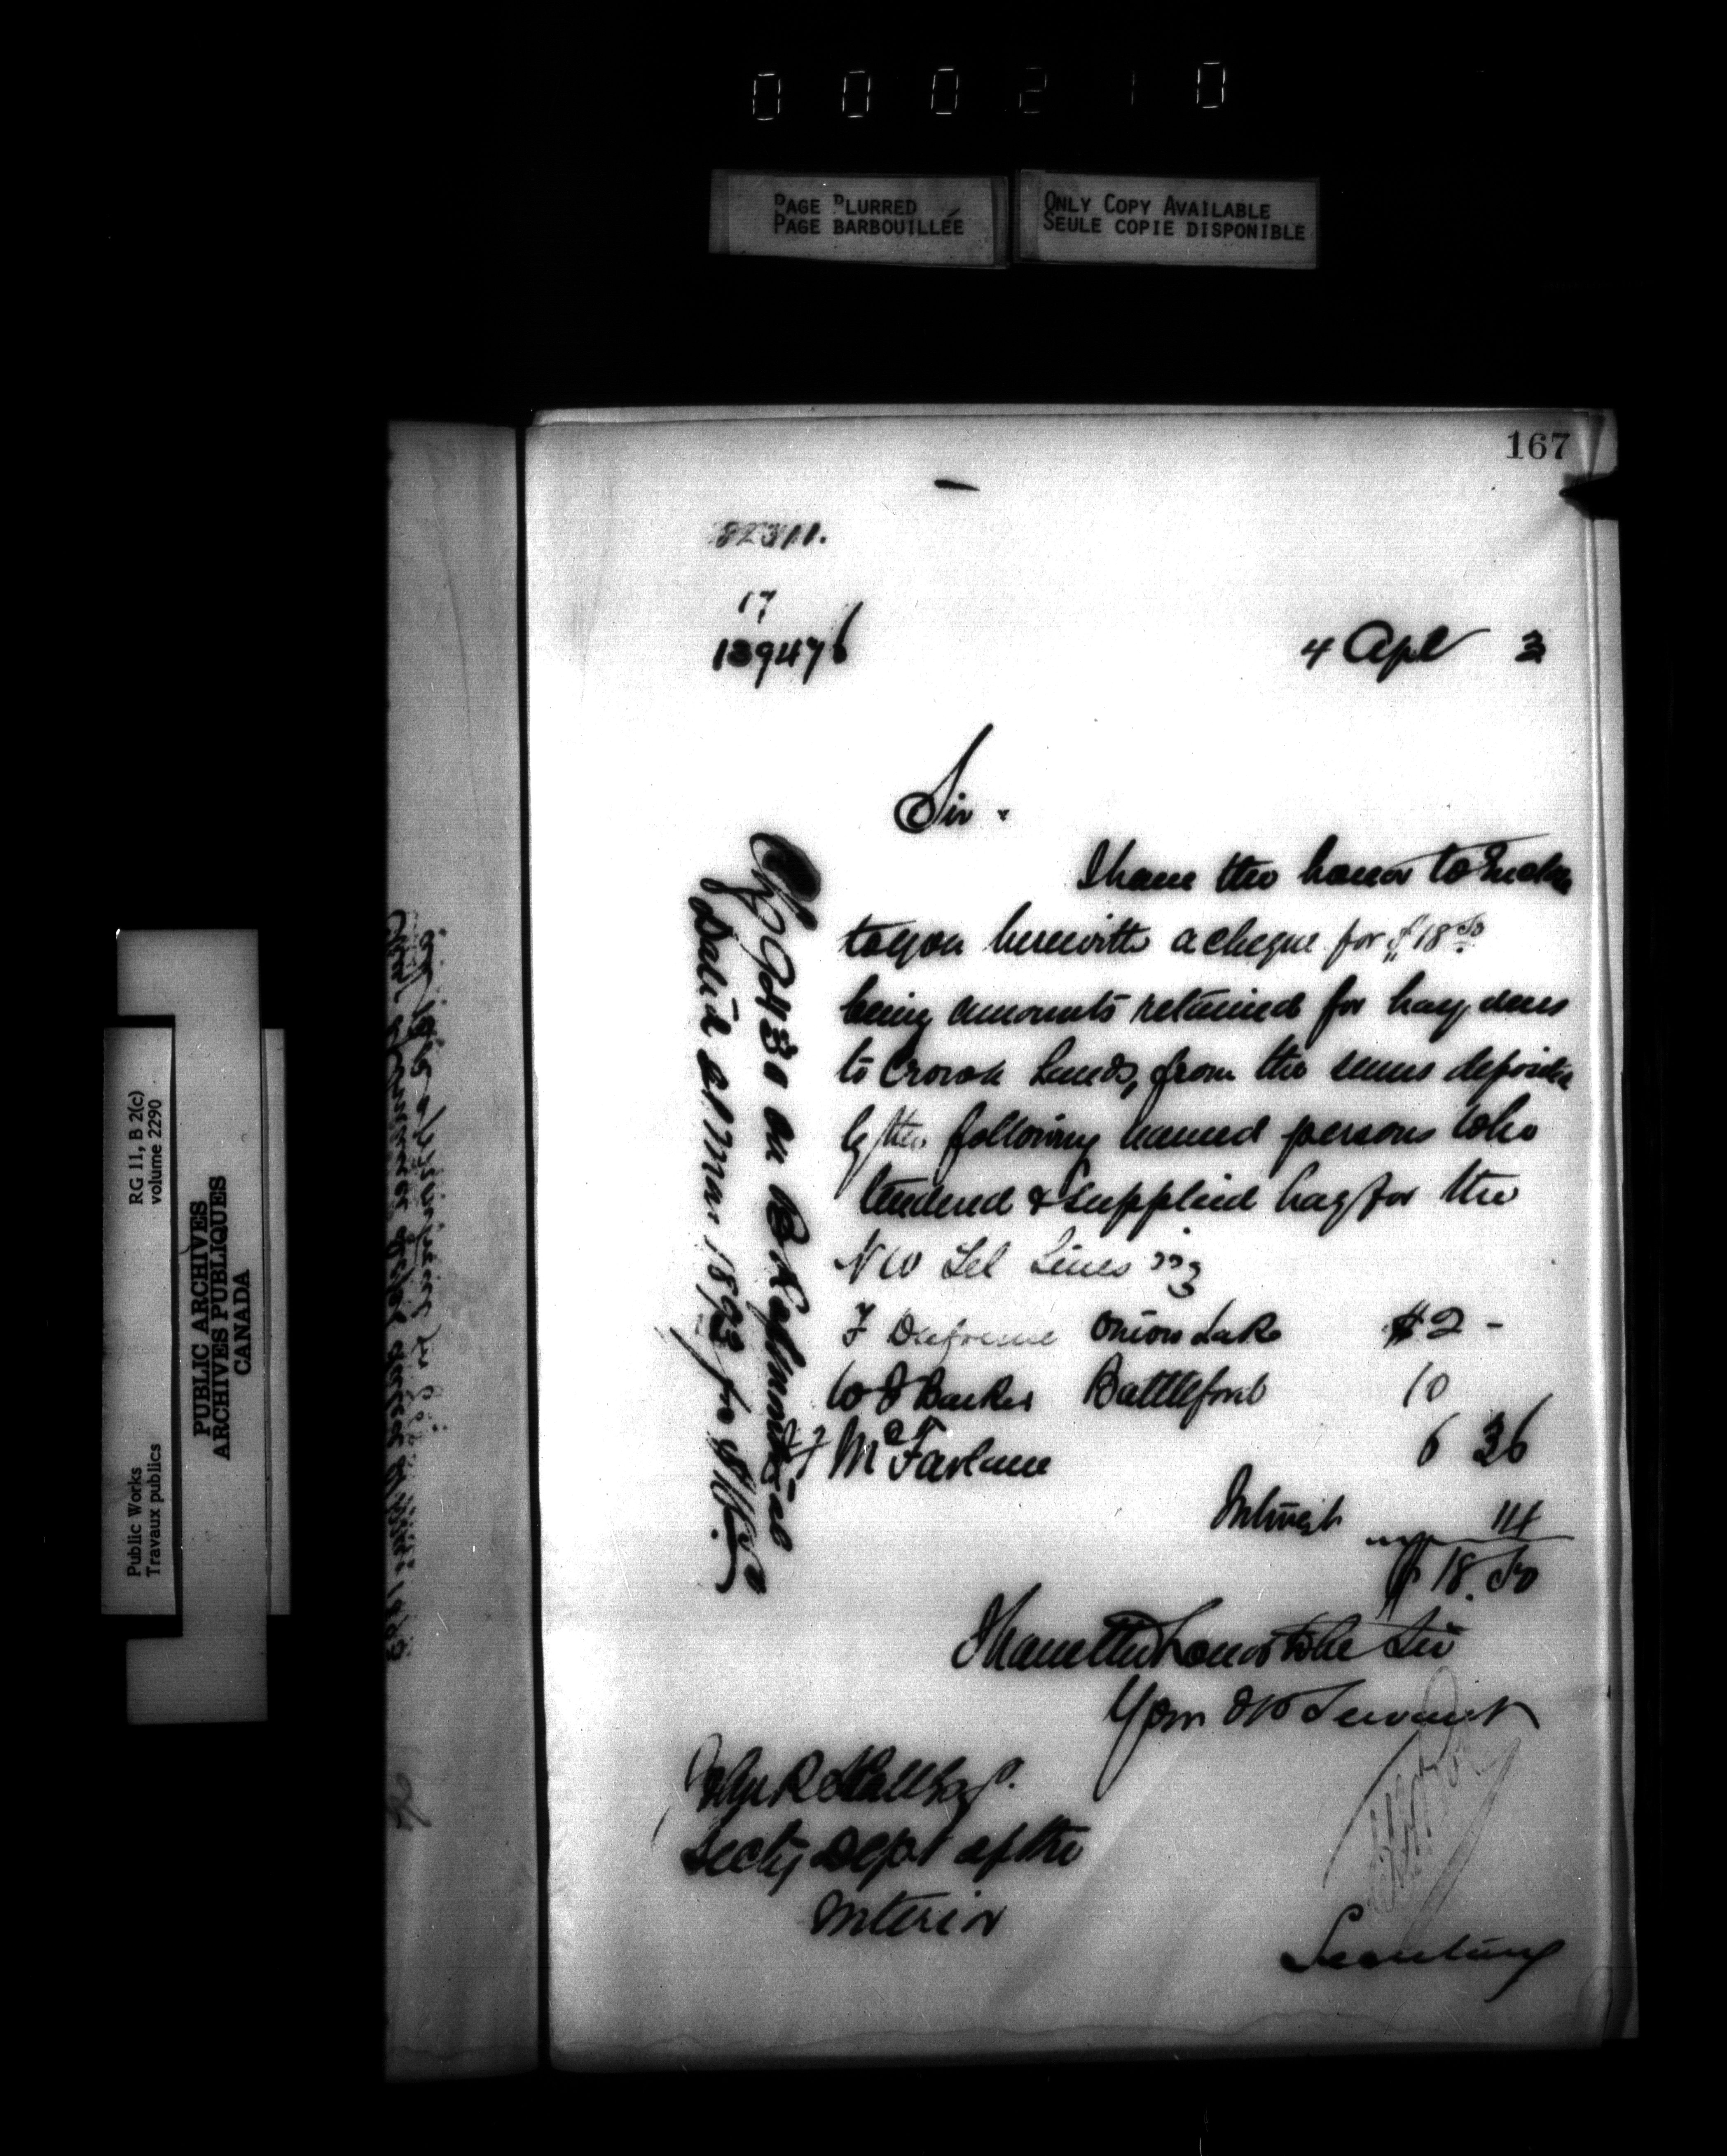 000210
PAGE BLURRED
PAGE BARBOUILLÉE
ONLY COPY AVAILABLE
SEULE COPIE DISPONIBLE
167
82311.
17
139476
4 Apl 3
Sir.
I have the honor to Enclose
to you herewith a cheque for $18 50
being amounts retained for hay dues
to Crown Lands, from the sums deposited
by the following named persons who
tendered & supplied hay for the
N W Tel Lines viz
F Dufresne Onion Lake $2 -
W J Barker Battleford 10
McFarlane 6 36
Interest 14
$18.50
I have the honor to be Sir
Your Ob Servant
John R Hall Esq.
Secty Dept of the
Interior
Secretary
on B of Montreal
Dated 21 Mar 1893 for $18.50
Public Works
Travaux publics
RG 11, B 2(c)
volume 2290
PUBLIC ARCHIVES
ARCHIVES PUBLIQUES
CANADA